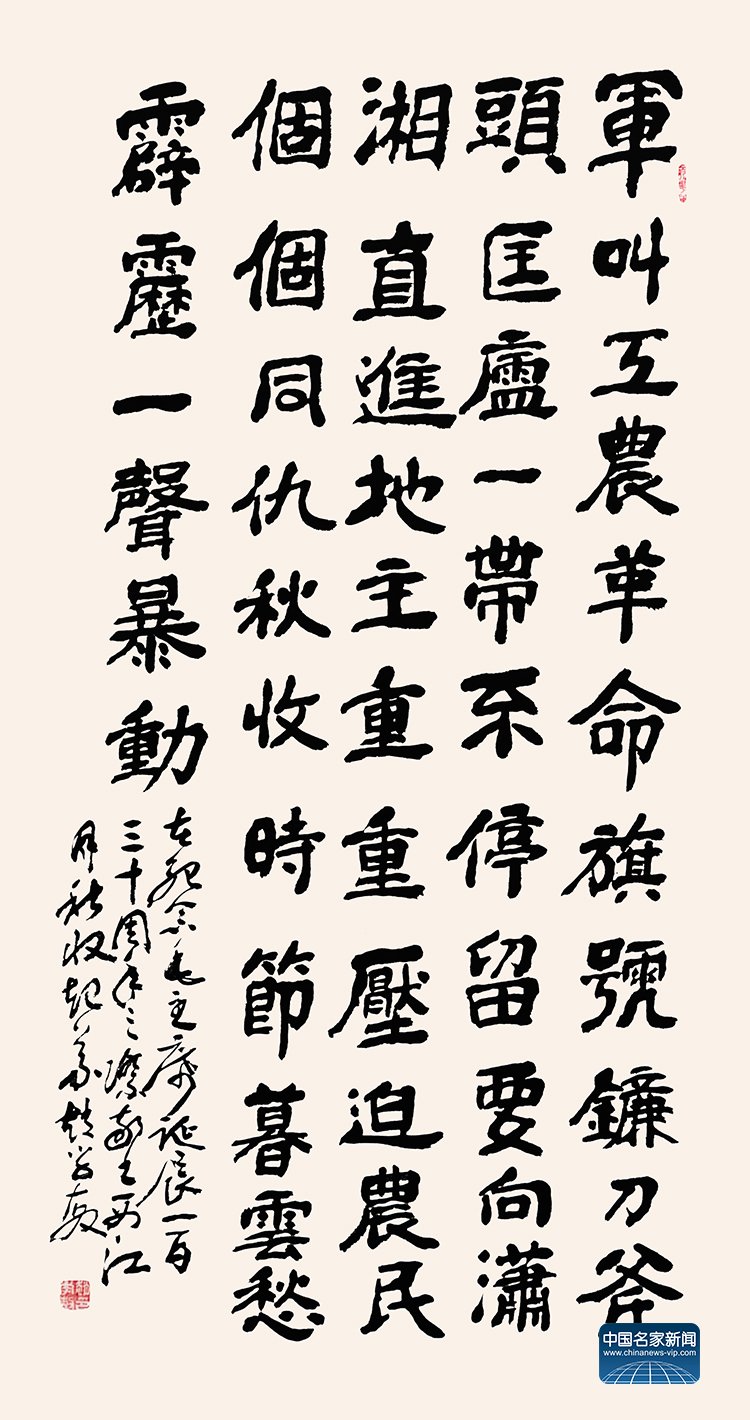 軍叫工農革命旗號鐮刀斧
頭匡廬一帶不停留要向瀟
湘直進地主重重壓迫農民
個個同仇秋收時節暮雲愁
霹靂一聲暴動
在紀念毛主席誕辰一百
三十周年之際敬书西江
月秋收起義趙学敏
中国名家新闻
www.chinanews-vip.com